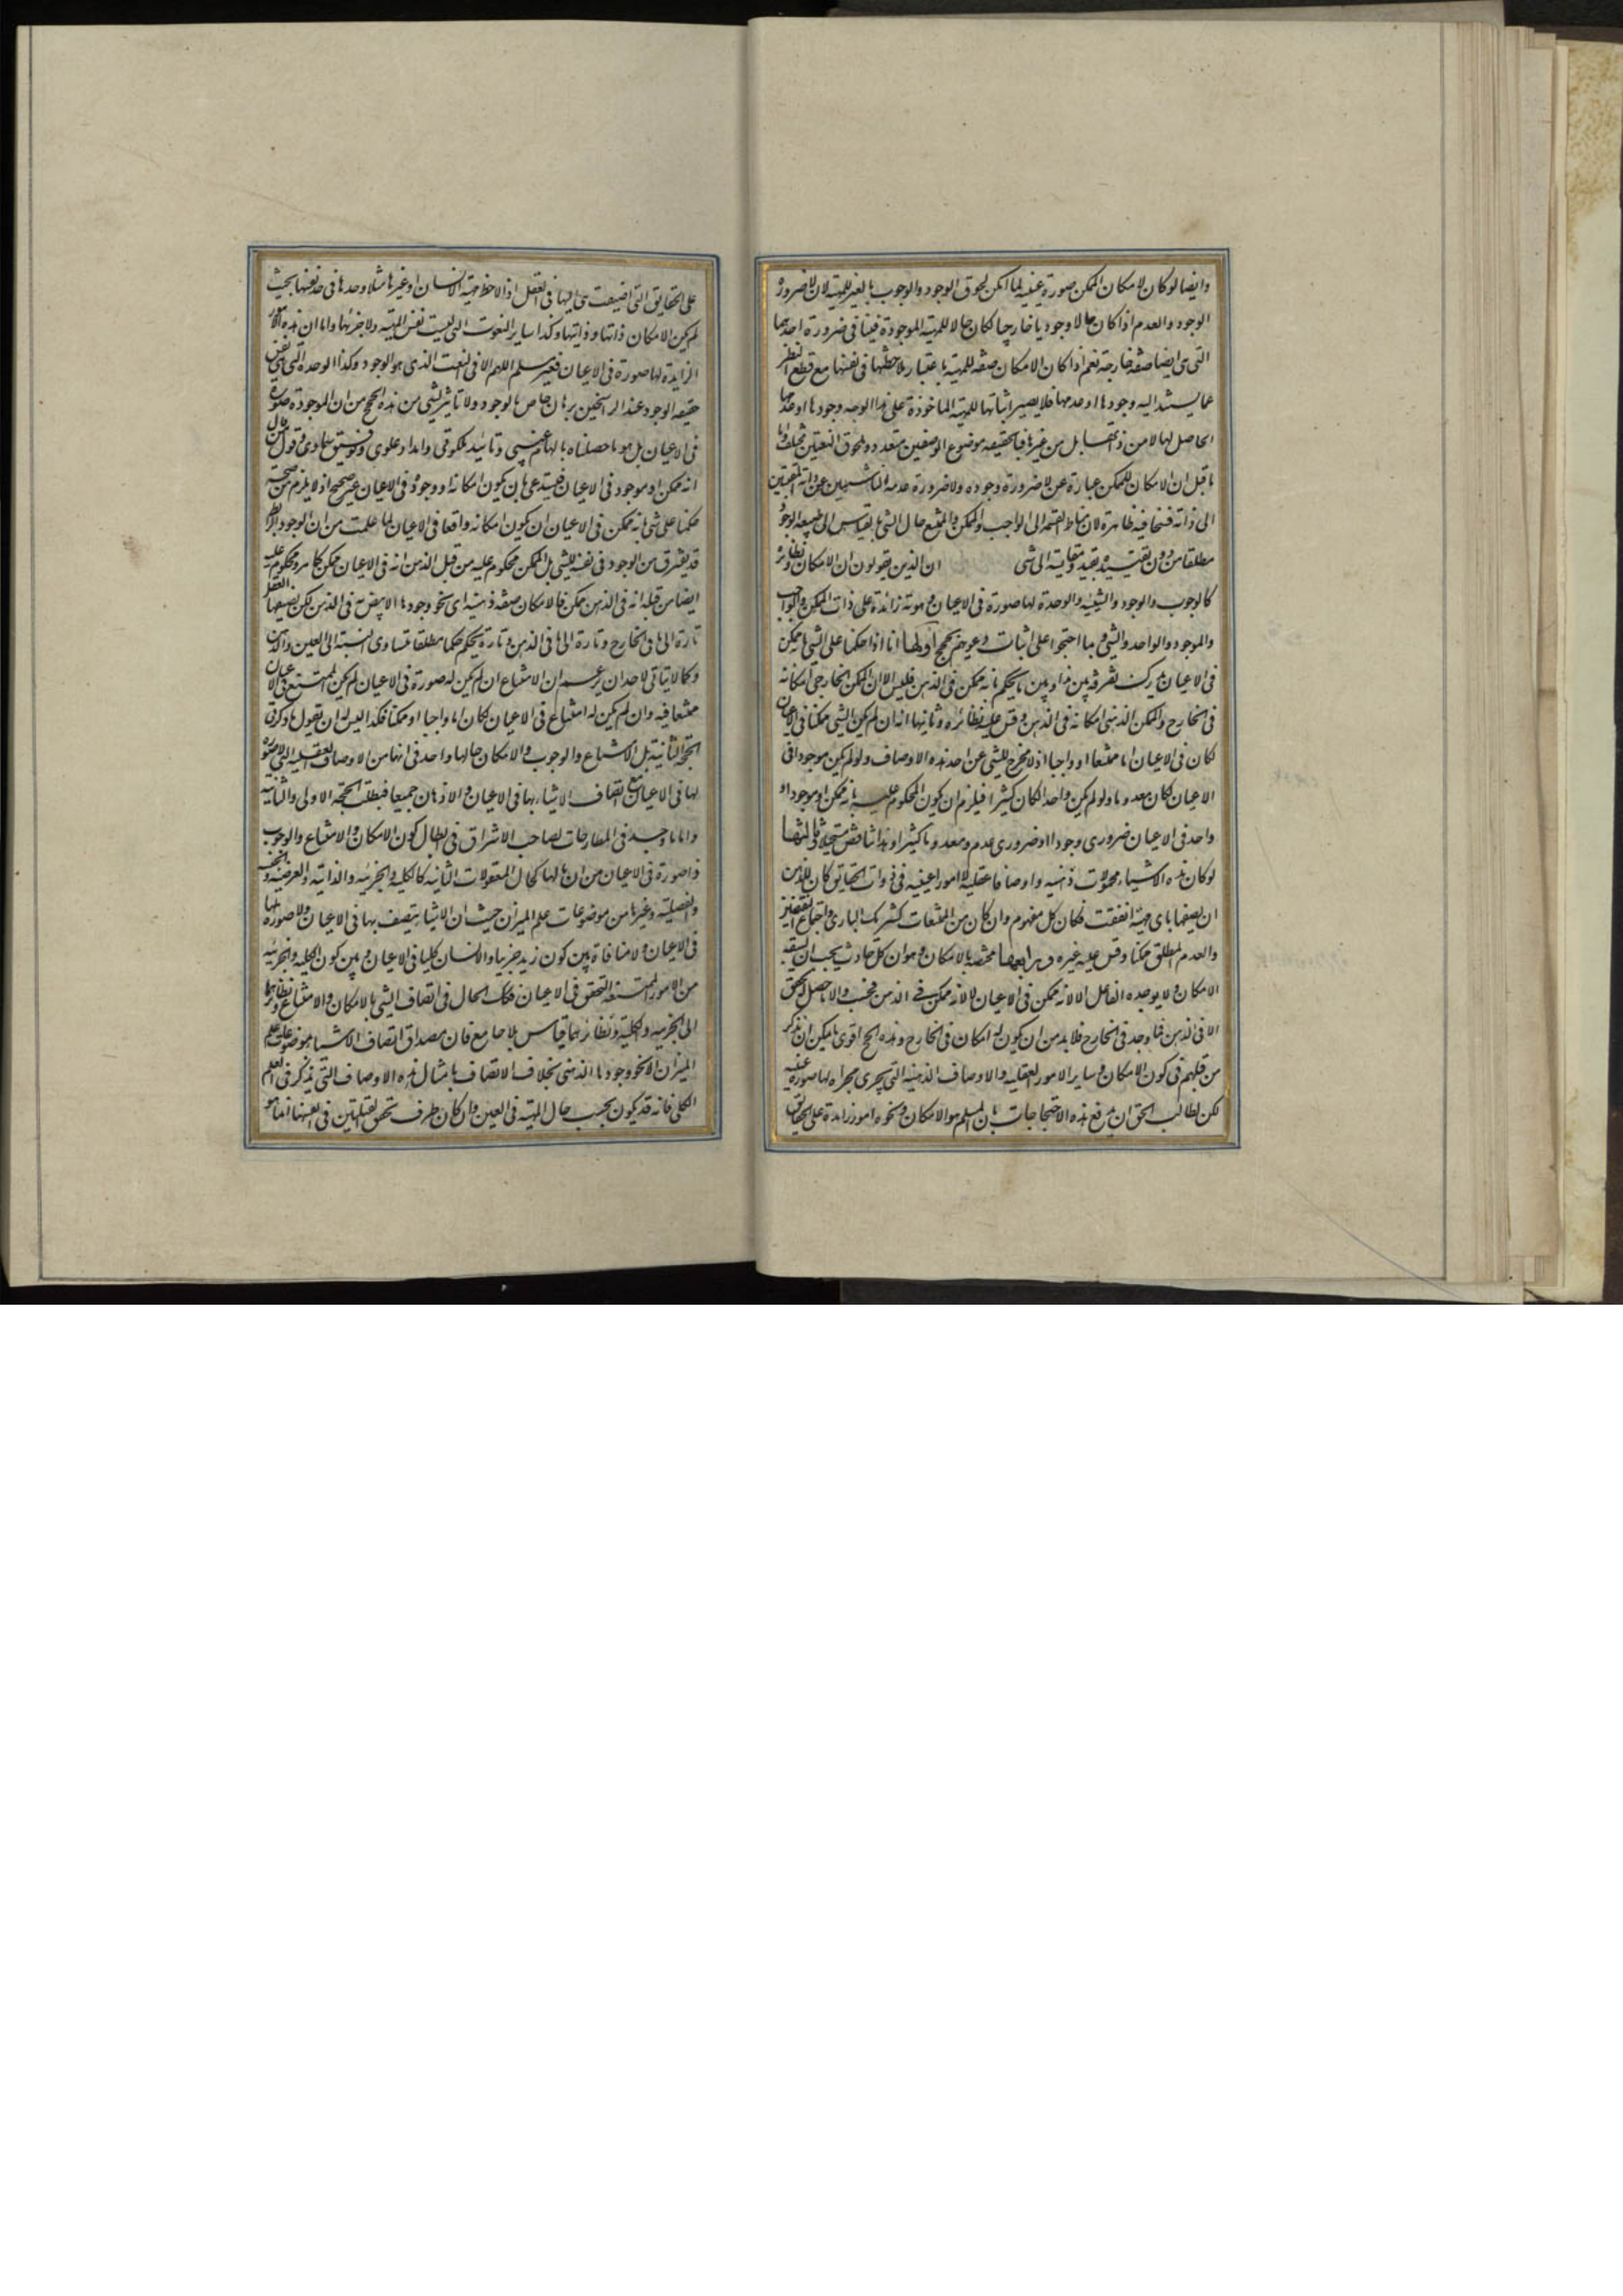 وايضا لو كان لامكان الممكن صورة عينية لما امكن لحوق الوجود والوجوب بالغير للمهية لان لاضرورة
الوجود والعدم اذا كان حالا وجوديا خارجيا لكان حالا للمهية الموجودة فينافى ضرورة احدهما
التى هى ايضا صفة خارجة نعم اذا كان الامكان صفة للمهية باعتبار ملاحظتها فى نفسها مع قطع النظر
عما يستند اليه وجودها او عدمها فلا يصير اثباتها للمهية الماخوذة على هذا الوجه وجودها او عدمها
الحاصل لها لا من ذاتها بل من غيرها فبالحقيقه موضوع الوصفين متعدد ولحوق النعتين مختلف واما
ما قيل ان الامكان للممكن عبارة عن لاضرورة وجوده ولاضرورة عدمه الناشيين عن ذاته المقيسين
الى ذاته فسخافته ظاهرة لان مناط القسمة الى الواجب والممكن والممتنع حال الشى بالقياس الى طبيعه الوجود
مطلقا من دون تقييده بقيد ومقايسته الى شى ان الذين يقولون ان الامكان ونظائره
كالوجوب والوجود والشيئيه والوحدة لها صورة فى الاعيان وهوية زائدة على ذات الممكن والواجب
والموجود والواحد والشى ربما احتجوا على اثبات دعويهم بحجج اوليها انا اذا حكمنا على الشى بانه ممكن
فى الاعيان ندرك تفرقة بين هذا وبين ما يحكم بانه ممكن فى الذهن فليس الا ان الممكن الخارجى امكانه
فى الخارج والممكن الذهنى امكانه فى الذهن وقس عليه نظائره وثانيها انه ان لم يكن الشى ممكنا فى الاعيان
لكان فى الاعيان اما ممتنعا او واجبا اذ لا مخرج للشى عن احد هذه الاوصاف ولو لم يكن موجودا فى
الاعيان لكان معدوما ولو لم يكن واحدا لكان كثيرا فيلزم ان يكون المحكوم عليه بانه ممكن او موجود او
واحد فى الاعيان ضرورى وجود او ضرورى عدم ومعدوما كثيرا وهذا تناقض مستحيل وثالثها
لو كان هذه الاشياء محمولات ذهنيه واوصافا عقلية لا امورا عينيه فى ذوات الحقايق كان للذهن
ان يصفها باى مهية اتفقت فكان كل مفهوم وان كان من الممتنعات كشريك البارى واجتماع النقيضين
والعدم المطلق ممكنا وقس عليه غيره ورابعها مختصه بالامكان وهو ان كل حادث يجب ان يسبقه
الامكان ولا يوجده الفاعل الا لانه ممكن فى الاعيان لا لانه ممكن فى الذهن فحسب والا ما حصل له تحقق
الا فى الذهن فما وجد فى الخارج فلا بد من ان يكون له امكان فى الخارج وهذه الحجج اقوى ما يمكن ان يذكر
من قبلهم فى كون الامكان وساير الامور العقليه والاوصاف الذهنيه التى يجرى مجراه لها صورة عينيه
لكن لطالب الحق ان يدفع هذه الاحتجاجات بان المسلم هو الامكان ونحوه امور زايدة على الحقايق
على الحقايق التى اضيفت هى اليها فى العقل اذا لاحظ مهية الانسان او غيرها مثلا وحدها فى حد نفسها بحيث
لم يكن الامكان ذاتها او ذاتيها وكذا ساير النعوت التى ليست نفس المهية ولا جزءها واما ان هذه الامور
الزايدة لها صورة فى الاعيان فغير مسلم اللهم الا فى النعت الذى هو الوجود وكذا الوحدة التى هى نفس
حقيقه الوجود عند الراسخين برهان خاص بالوجود ولا تاثير لشى من هذه الحجج من ان الموجود ذو صورة
فى الاعيان بل هو ما حصلناه بالهام غيبى وتائيد ملكوتى وامداد علوى وتوفيق سماوى وقول من قال
انه ممكن او موجود فى الاعيان فيستدعى بان يكون امكانه او وجوده فى الاعيان غير صحيح اذ لا يلزم من صحة
حكمنا على شى بانه ممكن فى الاعيان ان يكون امكانه واقعا فى الاعيان لما علمت من ان الوجود الرابط
قد يفترق من الوجود فى نفسه للشى بل الممكن محكوم عليه من قبل الذهن انه فى الاعيان ممكن كما هو محكوم عليه
ايضا من قبله انه فى الذهن ممكن فالامكان صفة ذهنيه اى نحو وجودها الا يعرض فى الذهن لكن يضيفها العقل
تارة الى ما فى الخارج وتارة الى ما فى الذهن وتارة يحكم حكما مطلقا متساوى النسبة الى العين والذهن
وكما لا يتاتى لاحد ان يزعم ان الامتناع ان لم يكن له صورة فى الاعيان لم يكن الممتنع فى الاعيان
ممتنعا فيه وان لم يكن له امتناع فى الاعيان لكان اما واجبا او ممكنا فكذا ليس له ان يقول ما ذكر فى
الحجة الثانية بل الامتناع والوجوب والامكان حالها واحد فى انها من الاوصاف العقليه التى لا صورة
لها فى الاعيان مع اتصاف الاشياء بها فى الاعيان والاذهان جميعا فبطلت الحجة الاولى والثانية
واما ما وجد فى المطارحات لصاحب الاشراق فى ابطال كون الامكان والامتناع والوجوب
ذا صورة فى الاعيان من ان حالها كحال المعقولات الثانيه كالكليه والجزئيه والذاتية والعرضيه والجنسيه
والفصلية وغيرها من موضوعات علم الميزان حيث ان الاشياء يتصف بها فى الاعيان ولا صورة لها
فى الاعيان ولا منافاة بين كون زيد جزئيا والانسان كليا فى الاعيان وبين كون الكليه والجزئيه
من الامور الممتنعه التحقق فى الاعيان فكذلك الحال فى اتصاف الشى بالامكان والامتناع ونظائرهما
الى الجزئيه والكلية ونظائرهما قياس بلا جامع فان مصداق اتصاف الاشياء بموضوعات علم
الميزان الا نحو وجودها الذهنى بخلاف الاتصاف بامثال هذه الاوصاف التى يذكر فى العلم
الكلى فانه قد يكون بحسب حال المهية فى العين وان كان ظرف تحقق القبيلتين فى انفسهما انما هو